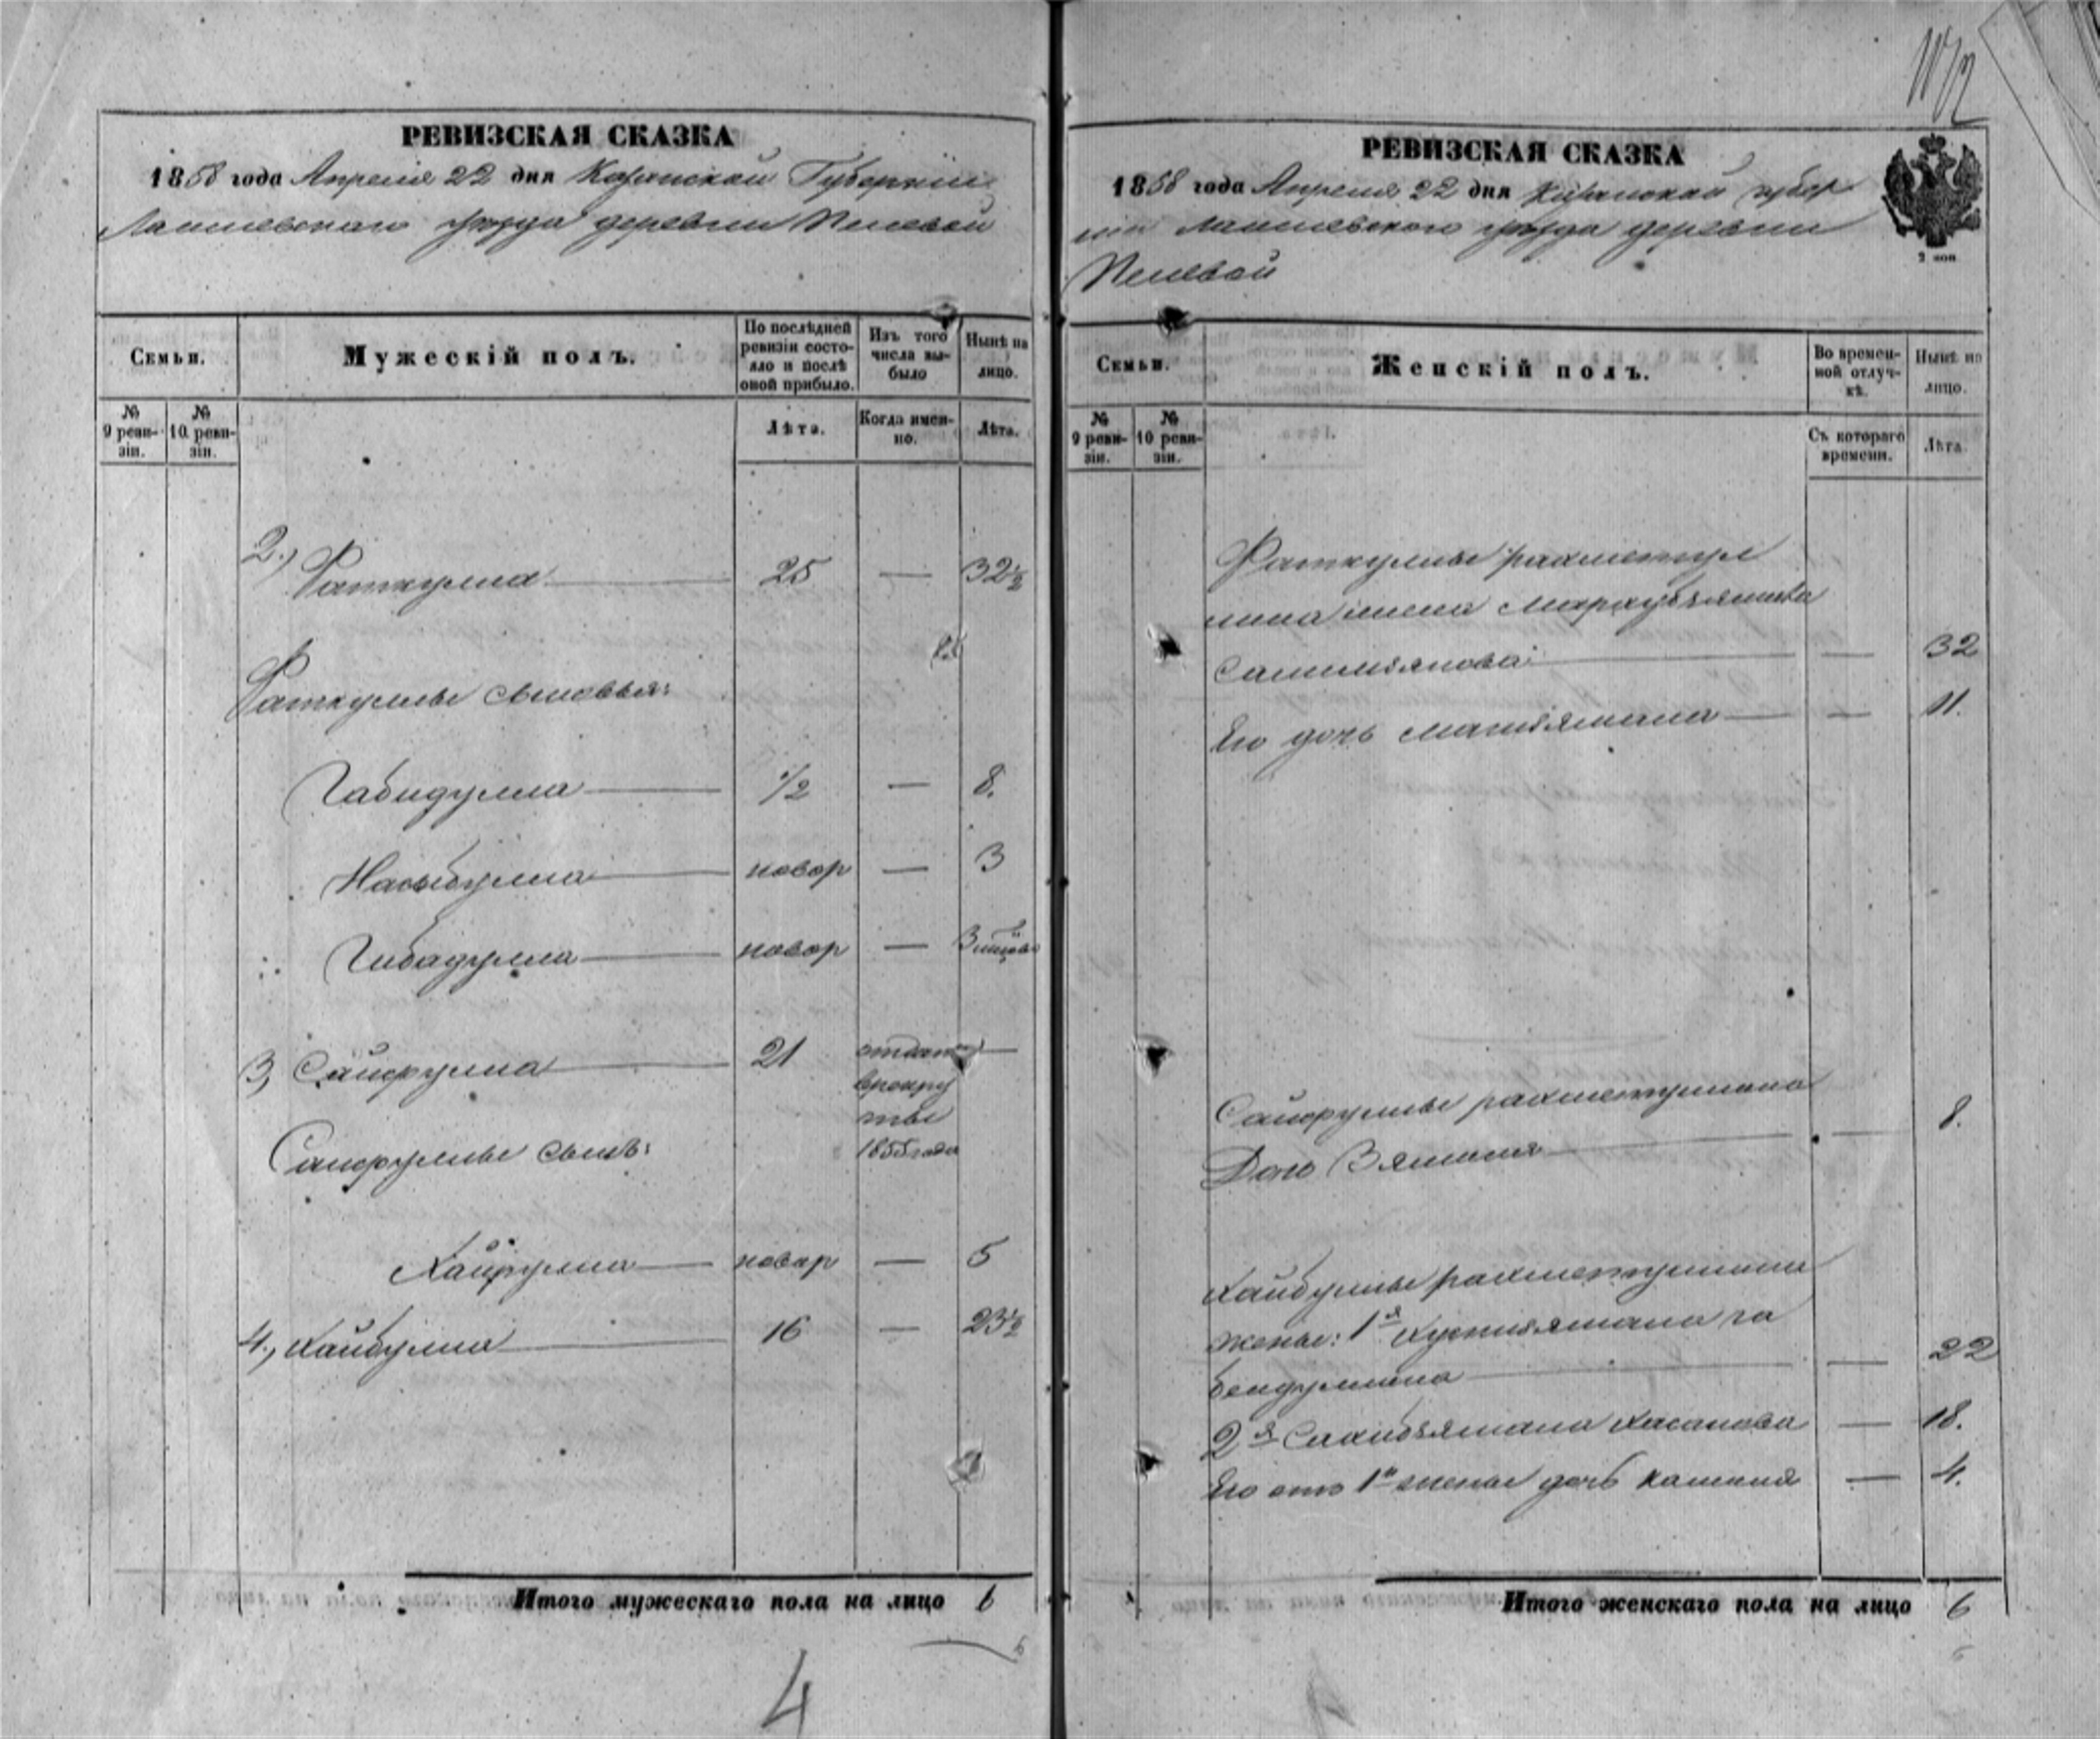 РЕВИЗСКАЯ СКАЗКА
1858 года Апреля 22 дня Казанской Губернии
Лаишевского уезда деревни
Семьи.
Мужескій полъ.
По послѣдней ревизіи состояло и послѣ оной прибыло.
Изъ того числа выбыло
Нынѣ на лицо.
№ 9 ревизіи.
№ 10 ревизіи.
Лѣта.
Когда именно.
Лѣта.
2., Фаткулла 25 — 32½
Фаткуллы сыновья:
Габидулла ½ — 8.
Насыбулла новор — 3
Гибадулла новор — 3
3, Сайфулла 21 отданъ
в рекру
ты
Сайфуллы сынъ: 1855 года
Хайрулла новор — 5
4., Хайбулла 16 — 23½
Итого мужескаго пола на лицо 6
4
РЕВИЗСКАЯ СКАЗКА
1858 года Апреля 22 дня Казанской губер
нии Лаишевского уезда деревни
2 коп
Семьи.
Женскій полъ.
Во временной отлучкѣ.
Нынѣ на лицо.
№ 9 ревизіи.
№ 10 ревизіи.
Съ котораго времени.
Лѣта.
Фаткуллы рахметул
лина жена
— 32
Его дочь — 11.
Сайфуллы рахметуллина
Дочь Зямиля — 8.
Хайбуллы рахметуллина
жены: 1я Хуснизямала га
бейдуллина — 22
2я Сахибзямала Хасанова — 18.
Его отъ 1й жены дочь камиля — 4.
Итого женскаго пола на лицо 6